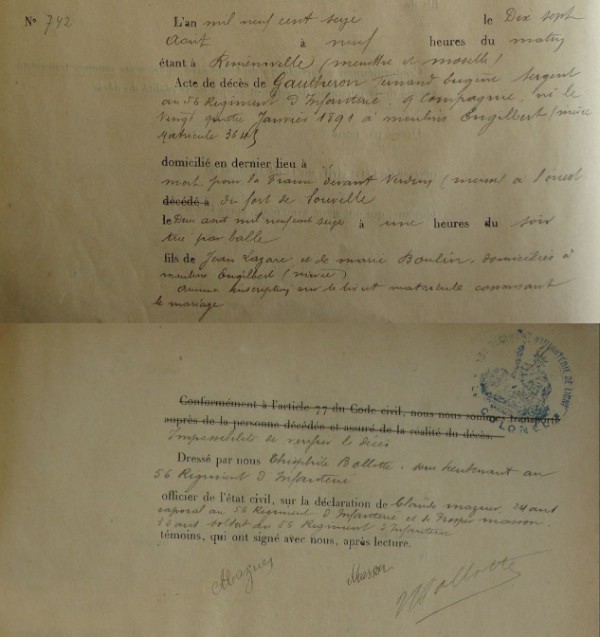 N° 742
L'an mil neuf cent seize le Dix sept
Aout à neuf heures du matin
étant à Remenoville (meurthe et moselle)
Acte de décès de Gautheron Fernand Eugène Sergent
au 56 Regiment d'Infanterie, 9 Compagnie, né le
Vingt quatre Janvier 1891 à moulins Engilbert (nièvre
Matricule 3645
domicilié en dernier lieu à
mort pour la France devant Verdun (meuse) à l'ouest
décédé à du fort de Souville
le Deux aout mil neuf cent seize à une heures du soir
tué par balle
fils de Jean Lazare et de marie Boulin, domiciliés à
moulins Engilbert (nièvre)
aucune inscription sur le livret matricule concernant
le mariage
COLONEL
Conformément à l'article 77 du Code civil, nous nous sommes transporté
auprès de la personne décédée et assuré de la réalité du décès.
Impossibilité de verifier le décès
Dressé par nous Théophile Ballotte, sous lieutenant au
56 Regiment d'Infanterie
officier de l'état civil, sur la déclaration de Claude maguer, 24 ans
caporal au 56 Regiment d'Infanterie et de Prosper masson,
ans soldat au 56 Regiment d'Infanterie
témoins, qui ont signé avec nous, après lecture.
Masson